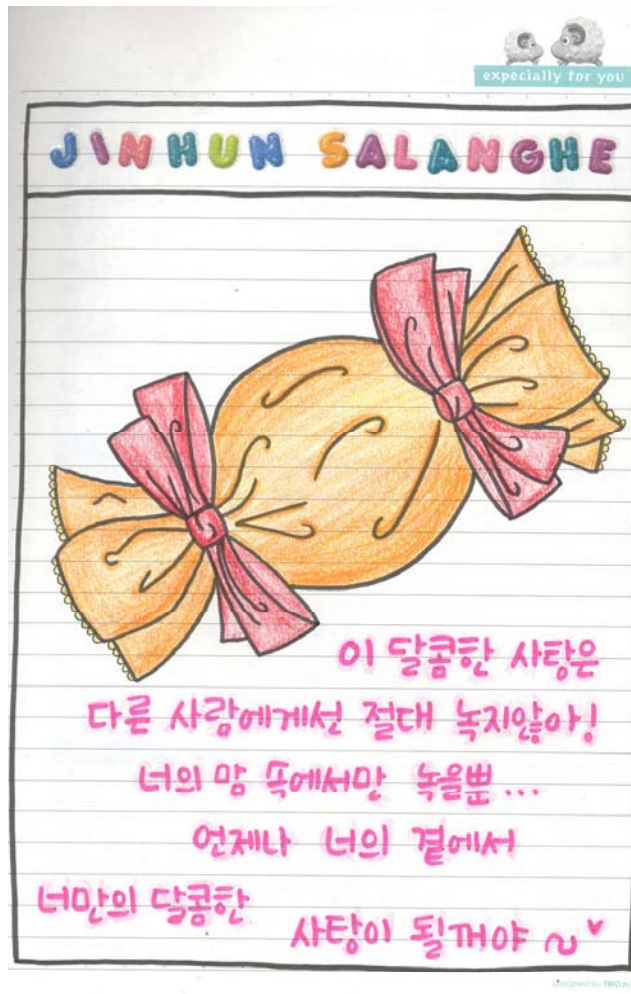 expecially for you
JINHUN SALANGHE
이 달콤한 사탕은
다른 사람에게선 절대 녹지않아!
너의 맘 속에서만 녹을뿐...
언제나 너의 곁에서
너만의 달콤한
사탕이 될꺼야 ~♥
designed by TWO n